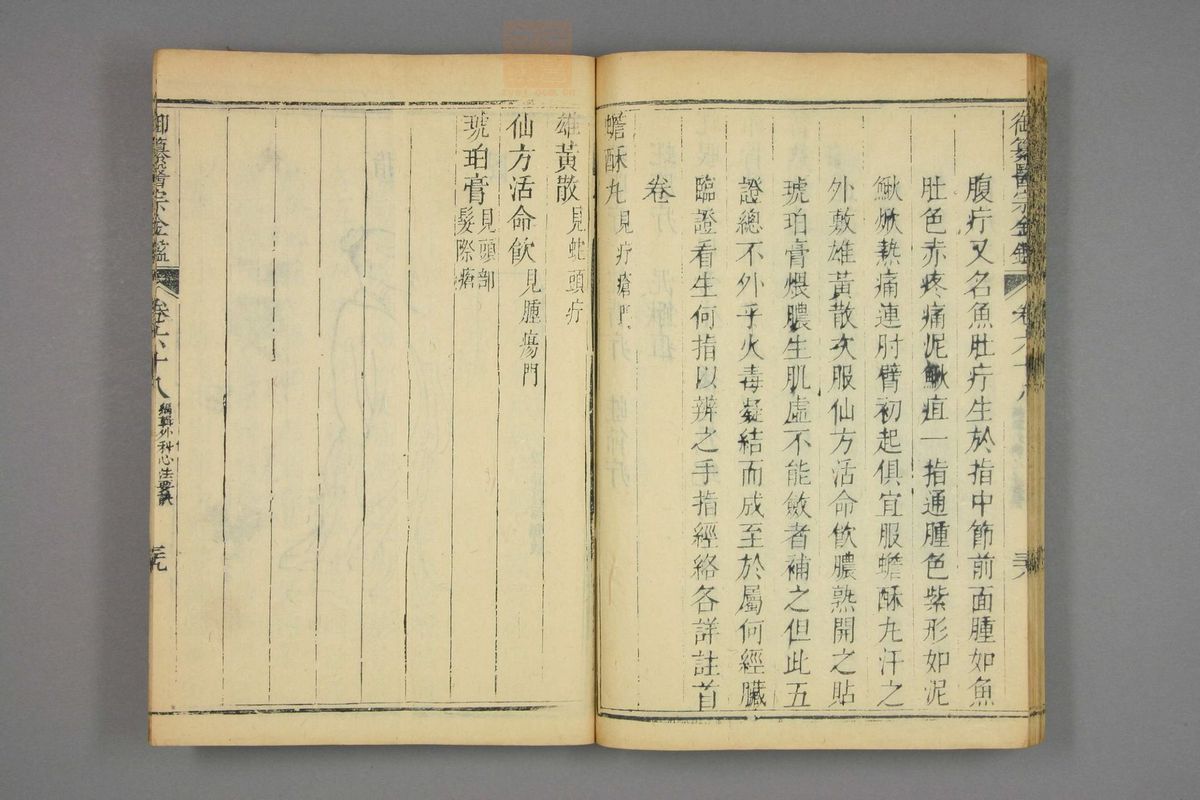 御纂醫宗金鑑 卷六十八 三八
腹疔又名魚肚疔生於指中節前面腫如魚
肚色赤疼痛泥鰍疽一指通腫色紫形如泥
鰍焮熱痛連肘臂初起俱宜服蟾酥丸汗之
外敷雄黃散次服仙方活命飲膿熟開之貼
琥珀膏煨膿生肌虛不能斂者補之但此五
證總不外乎火毒凝結而成至於屬何經臟
臨證看生何指以辨之手指經絡各詳註首
卷
蟾酥丸見疔瘡門
雄黃散見蛇頭疔
仙方活命飲見腫瘍門
琥珀膏見頭部髮際瘡
御纂醫宗金鑑 卷六十八 編輯外科心法要訣 三九